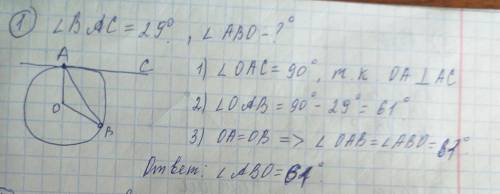 ① ∠BAC = 29°, ∠ABO - ?
A
C
O
B
1) ∠OAC = 90°, т.к. OA ⊥ AC
2) ∠OAB = 90° - 29° = 61°
3) OA = OB => ∠OAB = ∠ABO = 61°
Ответ: ∠ABO = 61°